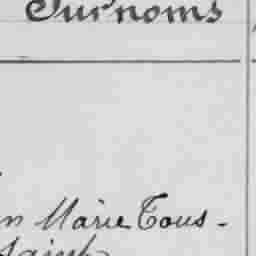 Surnoms
n Marie Tous-
saint